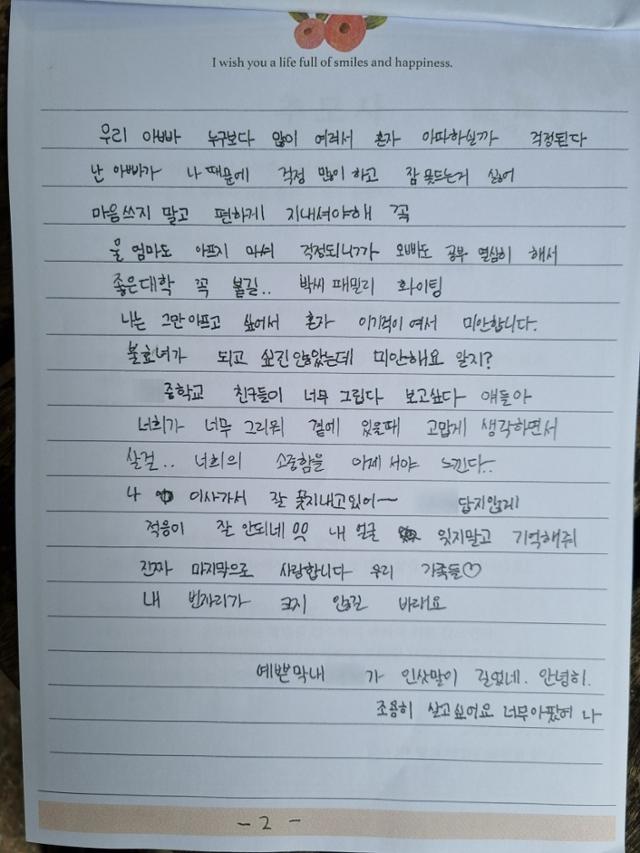 I wish you a life full of smiles and happiness.
우리 아빠 누구보다 맘이 여려서 혼자 아파하실까 걱정된다
난 아빠가 나 때문에 걱정 많이 하고 잠 못드는거 싫어
마음쓰지 말고 편하게 지내셔야해 꼭
울 엄마도 아프지 마셔 걱정되니까 오빠도 공부 열심히 해서
좋은대학 꼭 붙길.. 박씨 패밀리 화이팅
나는 그만 아프고 싶어서 혼자 이기적이여서 미안합니다.
불효녀가 되고 싶진 않았는데 미안해요 알지?
중학교 친구들이 너무 그립다 보고싶다 얘들아
너희가 너무 그리워 곁에 있을때 고맙게 생각하면서
살걸.. 너희의 소중함을 이제 서야 느낀다..
나 이사가서 잘 못지내고있어~ 답지않게
적응이 잘 안되네 내 얼굴 잊지말고 기억해줘
진짜 마지막으로 사랑합니다 우리 가족들♡
내 빈자리가 크지 않길 바래요
예쁜막내 가 인삿말이 길었네. 안녕히.
조용히 살고싶어요 너무아팠어 나
- 2 -